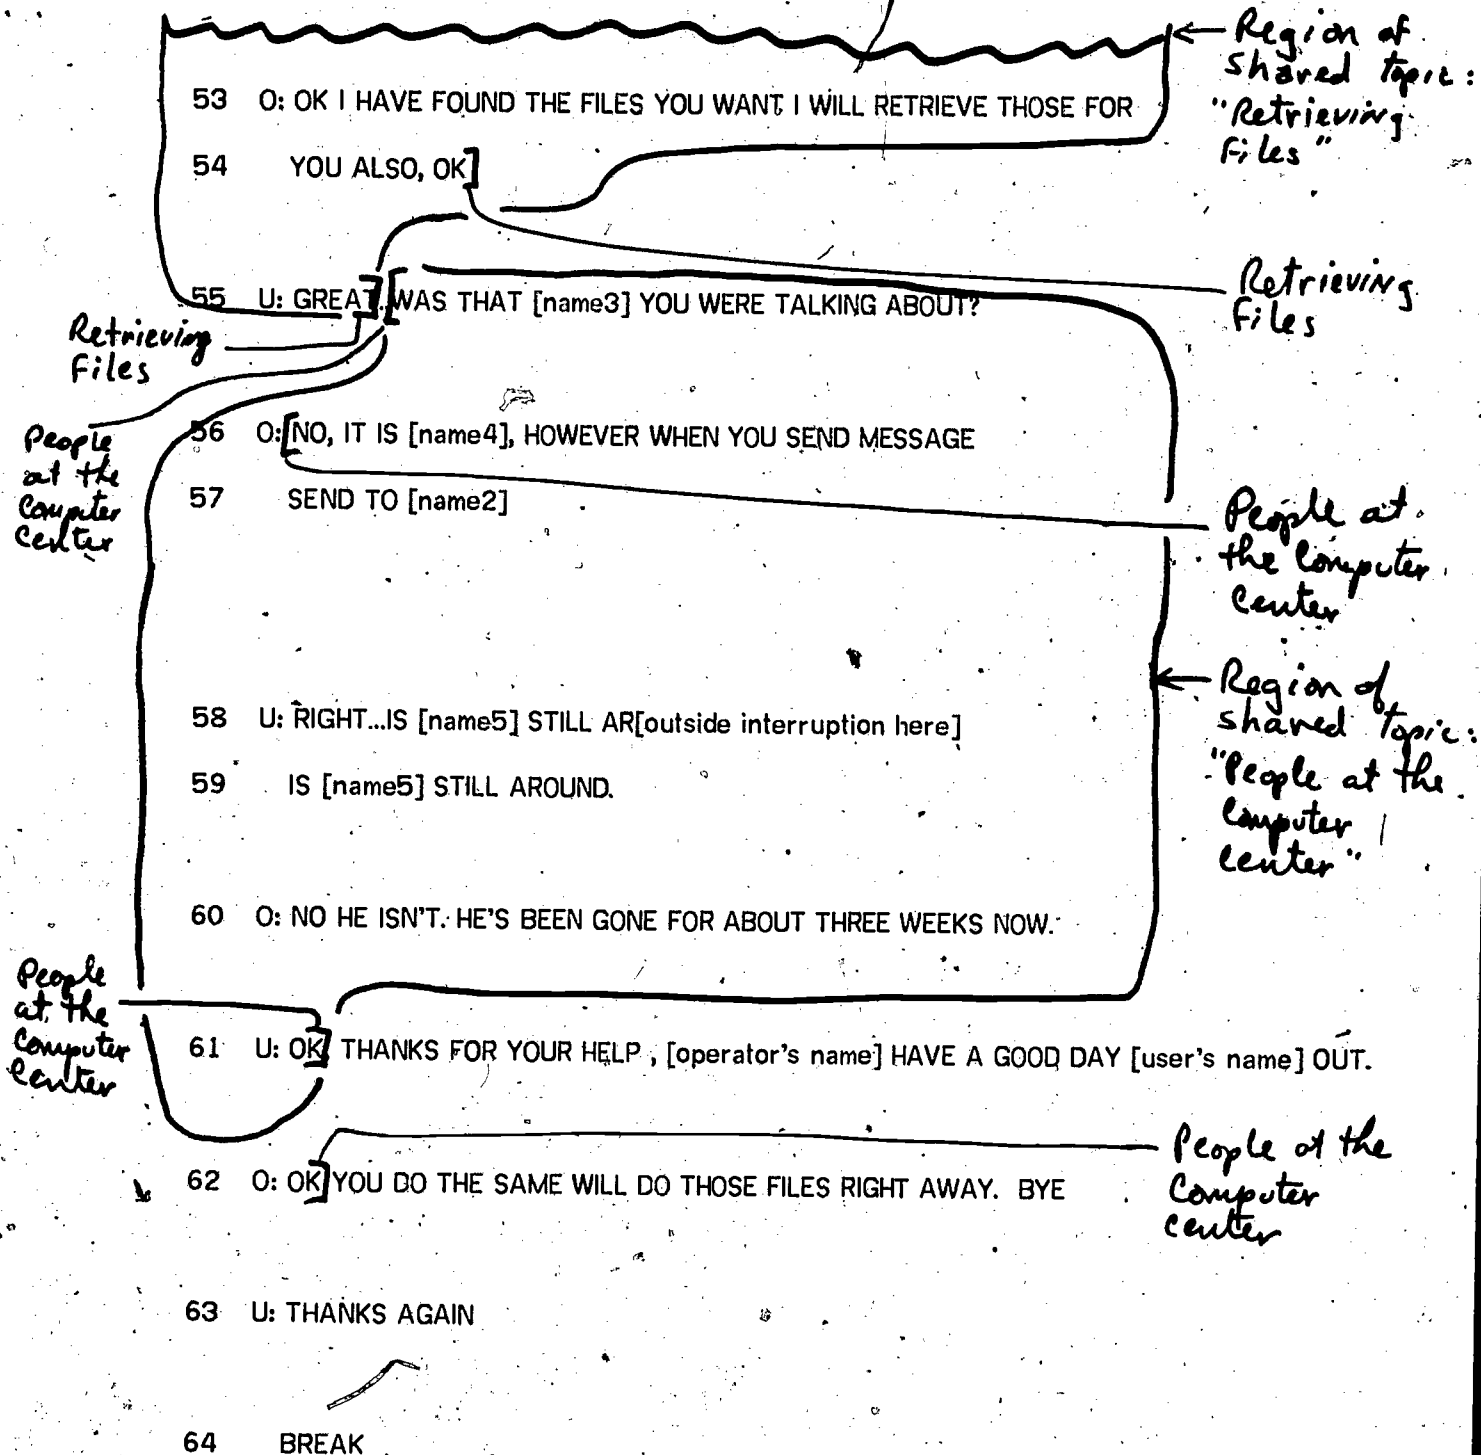 Region of
shared topic:
"Retrieving
Files"
53 O: OK I HAVE FOUND THE FILES YOU WANT I WILL RETRIEVE THOSE FOR
54 YOU ALSO, OK]
Retrieving
Files
55 U: GREAT].[WAS THAT [name3] YOU WERE TALKING ABOUT?
Retrieving
Files
People
at the
Computer
Center
56 O:[NO, IT IS [name4], HOWEVER WHEN YOU SEND MESSAGE
57 SEND TO [name2]
People at
the Computer
Center
58 U: RIGHT...IS [name5] STILL AR[outside interruption here]
59 IS [name5] STILL AROUND.
Region of
shared topic:
"People at the
Computer
Center"
60 O: NO HE ISN'T. HE'S BEEN GONE FOR ABOUT THREE WEEKS NOW.
People
at the
Computer
Center
61 U: OK] THANKS FOR YOUR HELP , [operator's name] HAVE A GOOD DAY [user's name] OUT.
People at the
Computer
Center
62 O: OK]YOU DO THE SAME WILL DO THOSE FILES RIGHT AWAY. BYE
63 U: THANKS AGAIN
64 BREAK